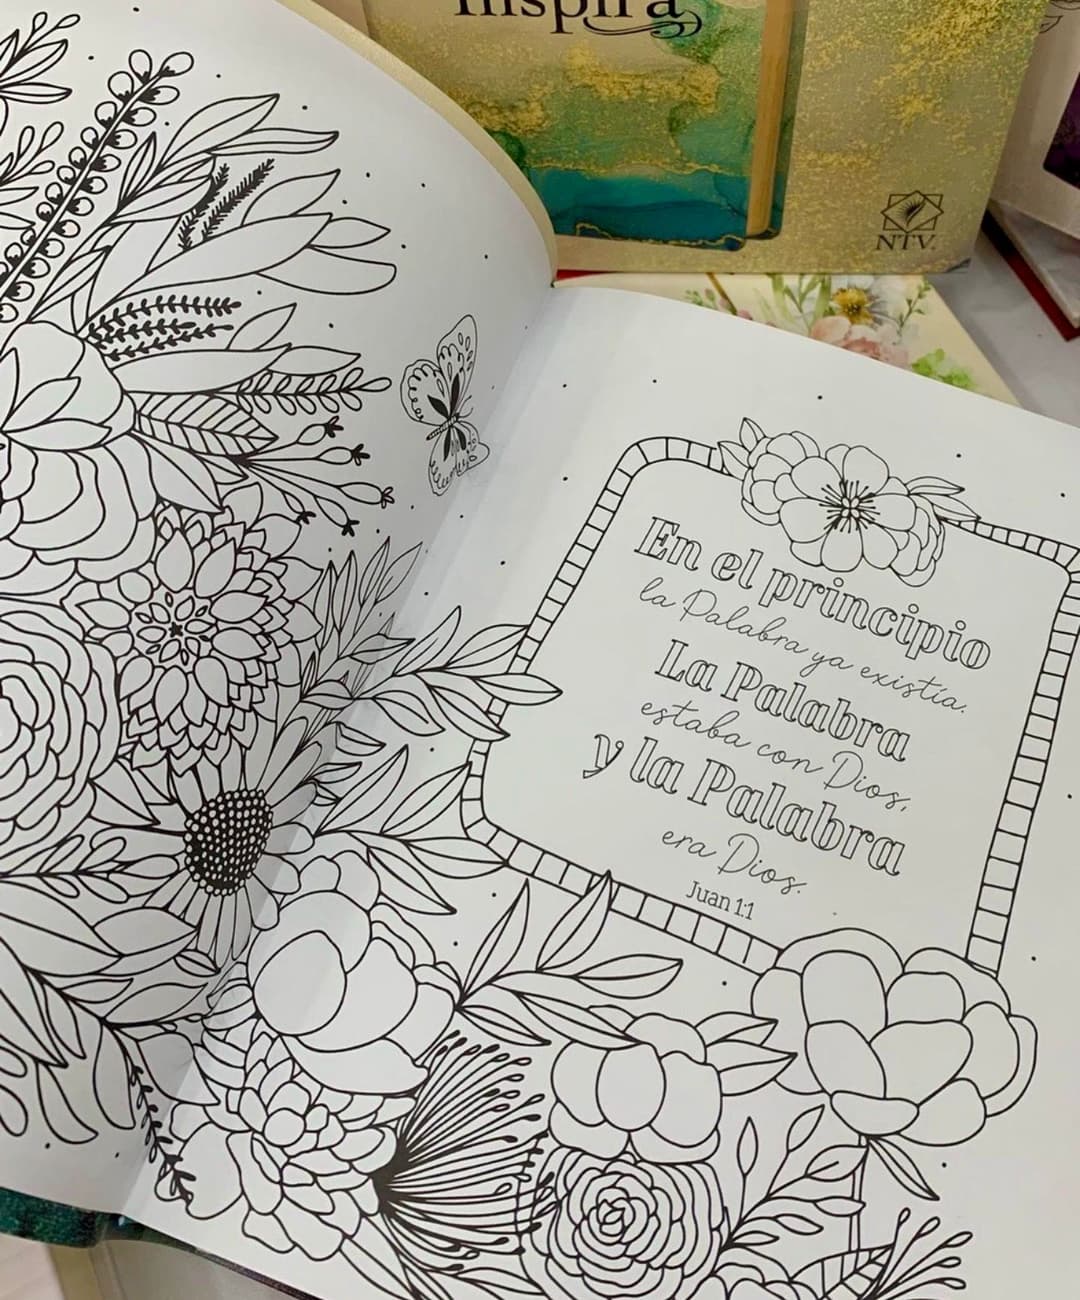 Inspira
NTV
En el principio
la Palabra ya existía.
La Palabra
estaba con Dios,
y la Palabra
era Dios.
Juan 1:1